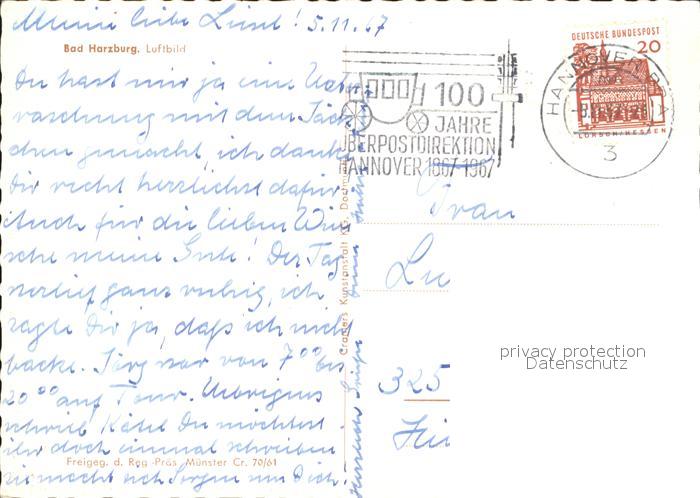 Meine liebe Liesel! 5.11.67
Bad Harzburg. Luftbild
Du hast mir ja eine Über
raschung mit dem Päck
chen gemacht, ich danke
Dir recht herzlichst dafür.
Auch für die lieben Wün
sche meine Gute! Der Tag
verlief ganz ruhig, ich
sagte Dir ja, daß ich nicht
backe. Jörg war von 7⁰⁰ bis
20⁰⁰ auf Tour. Übrigens
schrieb Käthe Du möchtest
ihr doch einmal schreiben
sie macht sich Sorgen um Dich.
Freigeg. d. Reg.-Präs. Münster Cr. 70/61
Herzliche Grüße
Cramers Kunstanstalt KG, Dortmund
100
JAHRE
OBERPOSTDIREKTION
HANNOVER 1867-1967
DEUTSCHE BUNDESPOST
20
LORSCH/HESSEN
HANNOVER
3
Frau
Lu
325
privacy protection
Datenschutz